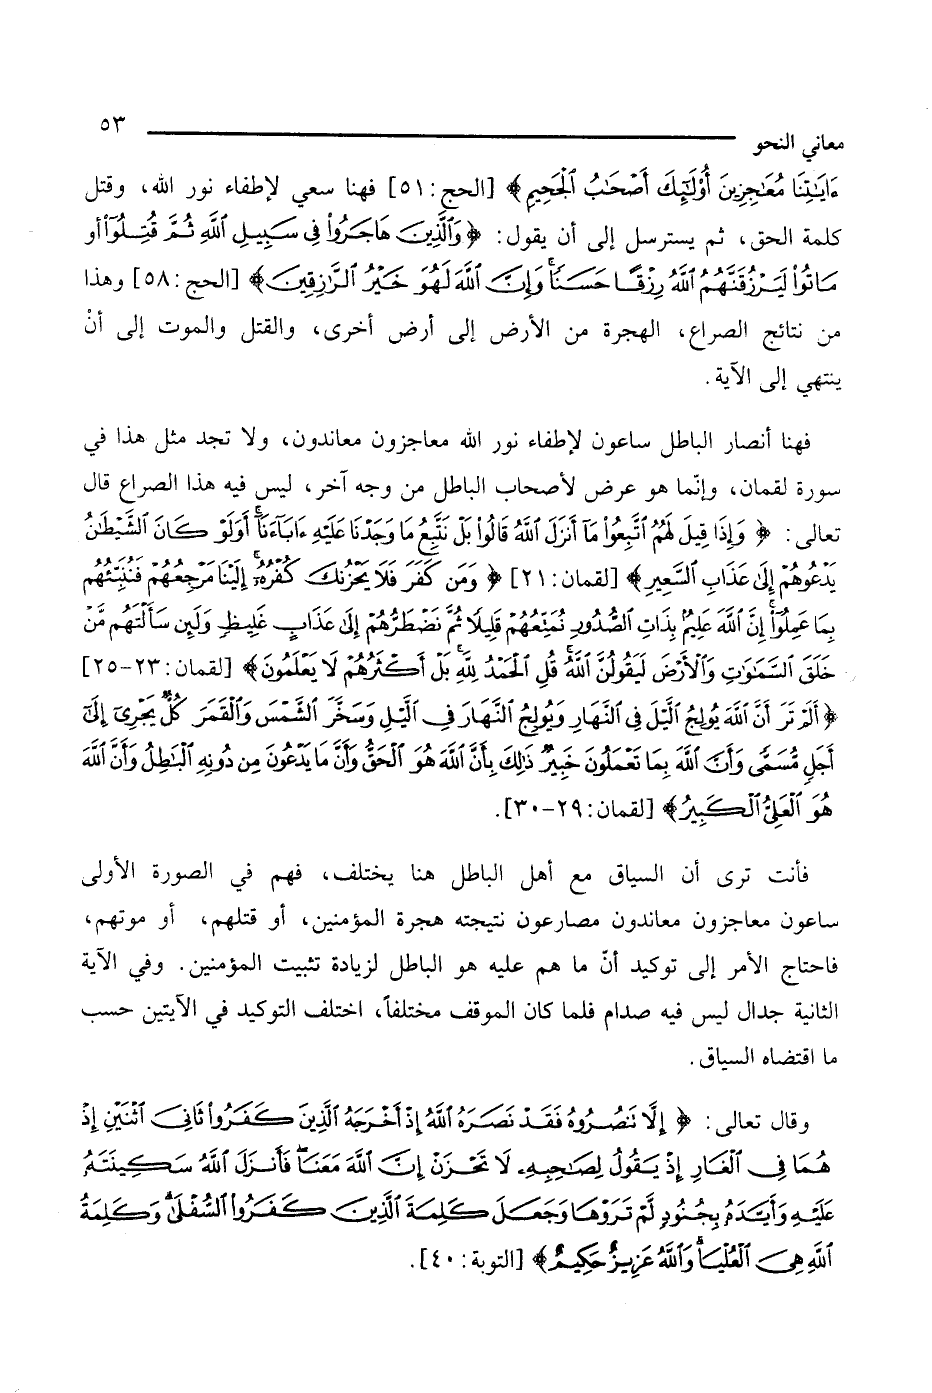 معاني النحو ٥٣
ءَايَـٰتِنَا مُعَـٰجِزِينَ أُوْلَـٰٓئِكَ أَصْحَـٰبُ ٱلْجَحِيمِ ﴾ [الحج: ٥١] فهنا سعي لإطفاء نور الله، وقتل
كلمة الحق، ثم يسترسل إلى أن يقول: ﴿ وَٱلَّذِينَ هَاجَرُواْ فِى سَبِيلِ ٱللَّهِ ثُمَّ قُتِلُوٓاْ أَوْ
مَاتُواْ لَيَرْزُقَنَّهُمُ ٱللَّهُ رِزْقًا حَسَنًاۚ وَإِنَّ ٱللَّهَ لَهُوَ خَيْرُ ٱلرَّٰزِقِينَ ﴾ [الحج: ٥٨] وهذا
من نتائج الصراع، الهجرة من الأرض إلى أرض أخرى، والقتل والموت إلى أنْ
ينتهي إلى الآية.
فهنا أنصار الباطل ساعون لإطفاء نور الله معاجزون معاندون، ولا تجد مثل هذا في
سورة لقمان، وإنّما هو عرض لأصحاب الباطل من وجه آخر، ليس فيه هذا الصراع قال
تعالى: ﴿ وَإِذَا قِيلَ لَهُمُ ٱتَّبِعُواْ مَآ أَنزَلَ ٱللَّهُ قَالُواْ بَلْ نَتَّبِعُ مَا وَجَدْنَا عَلَيْهِ ءَابَآءَنَآۚ أَوَلَوْ كَانَ ٱلشَّيْطَـٰنُ
يَدْعُوهُمْ إِلَىٰ عَذَابِ ٱلسَّعِيرِ ﴾ [لقمان: ٢١] ﴿ وَمَن كَفَرَ فَلَا يَحْزُنكَ كُفْرُهُۥٓۚ إِلَيْنَا مَرْجِعُهُمْ فَنُنَبِّئُهُم
بِمَا عَمِلُوٓاْۚ إِنَّ ٱللَّهَ عَلِيمٌۢ بِذَاتِ ٱلصُّدُورِ نُمَتِّعُهُمْ قَلِيلًا ثُمَّ نَضْطَرُّهُمْ إِلَىٰ عَذَابٍ غَلِيظٍ وَلَئِن سَأَلْتَهُم مَّنْ
خَلَقَ ٱلسَّمَـٰوَٰتِ وَٱلْأَرْضَ لَيَقُولُنَّ ٱللَّهُۚ قُلِ ٱلْحَمْدُ لِلَّهِۚ بَلْ أَكْثَرُهُمْ لَا يَعْلَمُونَ ﴾ [لقمان: ٢٣-٢٥]
﴿ أَلَمْ تَرَ أَنَّ ٱللَّهَ يُولِجُ ٱلَّيْلَ فِى ٱلنَّهَارِ وَيُولِجُ ٱلنَّهَارَ فِى ٱلَّيْلِ وَسَخَّرَ ٱلشَّمْسَ وَٱلْقَمَرَ كُلٌّ يَجْرِىٓ إِلَىٰٓ
أَجَلٍ مُّسَمًّى وَأَنَّ ٱللَّهَ بِمَا تَعْمَلُونَ خَبِيرٌ ذَٰلِكَ بِأَنَّ ٱللَّهَ هُوَ ٱلْحَقُّ وَأَنَّ مَا يَدْعُونَ مِن دُونِهِ ٱلْبَـٰطِلُ وَأَنَّ ٱللَّهَ
هُوَ ٱلْعَلِىُّ ٱلْكَبِيرُ ﴾ [لقمان: ٢٩-٣٠].
فأنت ترى أن السياق مع أهل الباطل هنا يختلف، فهم في الصورة الأولى
ساعون معاجزون معاندون مصارعون نتيجته هجرة المؤمنين، أو قتلهم، أو موتهم،
فاحتاج الأمر إلى توكيد أنّ ما هم عليه هو الباطل لزيادة تثبيت المؤمنين. وفي الآية
الثانية جدال ليس فيه صدام فلما كان الموقف مختلفاً، اختلف التوكيد في الآيتين حسب
ما اقتضاه السياق.
وقال تعالى: ﴿ إِلَّا تَنصُرُوهُ فَقَدْ نَصَرَهُ ٱللَّهُ إِذْ أَخْرَجَهُ ٱلَّذِينَ كَفَرُواْ ثَانِىَ ٱثْنَيْنِ إِذْ
هُمَا فِى ٱلْغَارِ إِذْ يَقُولُ لِصَـٰحِبِهِۦ لَا تَحْزَنْ إِنَّ ٱللَّهَ مَعَنَاۖ فَأَنزَلَ ٱللَّهُ سَكِينَتَهُۥ
عَلَيْهِ وَأَيَّدَهُۥ بِجُنُودٍ لَّمْ تَرَوْهَا وَجَعَلَ كَلِمَةَ ٱلَّذِينَ كَفَرُواْ ٱلسُّفْلَىٰۗ وَكَلِمَةُ
ٱللَّهِ هِىَ ٱلْعُلْيَاۗ وَٱللَّهُ عَزِيزٌ حَكِيمٌ ﴾ [التوبة: ٤٠].